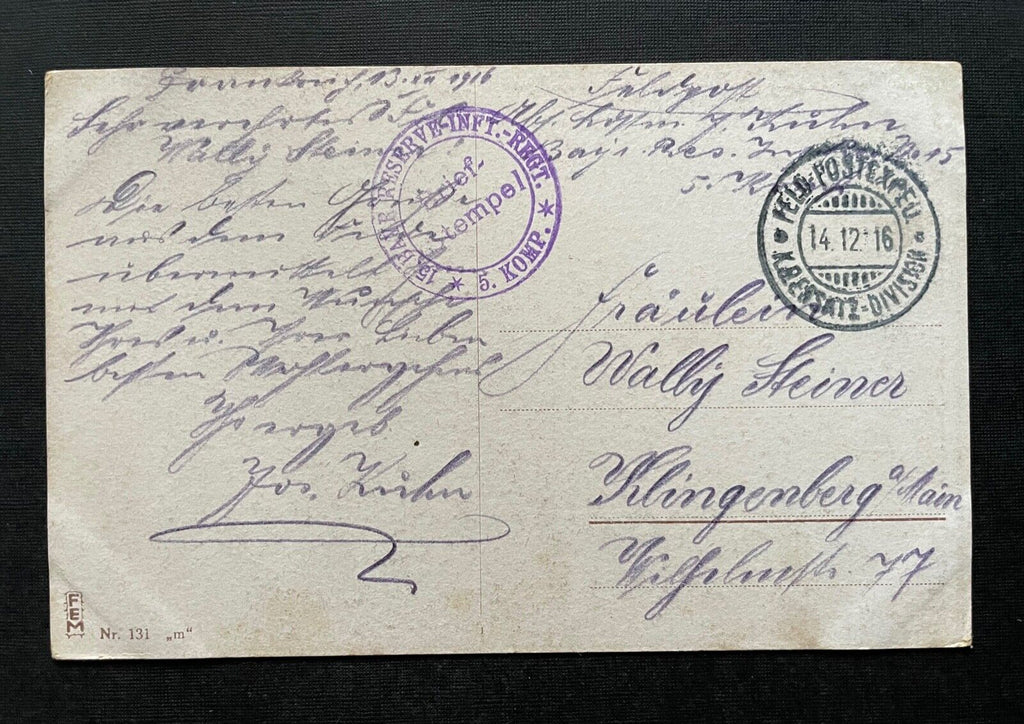 Frankreich, 13.XII 1916
Sehr verehrtes Frl.
Wally Steiner!
Die besten Grüße
aus dem Felde
übermittelt
mit dem Wunsche
Ihres u. Ihrer Lieben
besten Wohlergehens
Ihr ergeb.
Jos. Kuhn
Feldpost
Abs. J. Kuhn
Bayr. Res. Inf. Nr. 15
5. K
15. BAYR. RESERVE-INFT.-REGT.
Brief-
stempel
* 5. KOMP. *
FELD-POSTEXPED.
14.12.16
K.B.ERSATZ-DIVISION
Fräulein
Wally Steiner
Klingenberg a/Main
Wilhelmstr. 77
FEM
Nr. 131 „m“